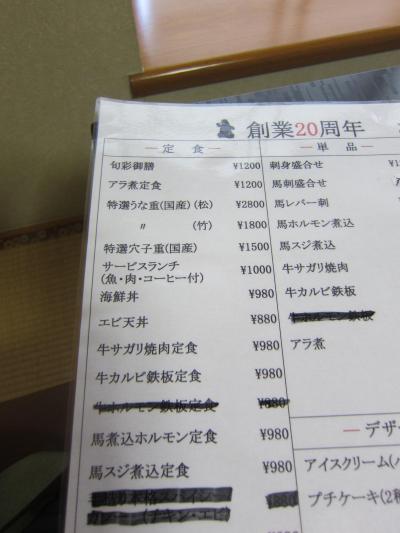 創業20周年
― 定 食 ―
旬彩御膳 ¥1200
アラ煮定食 ¥1200
特選うな重(国産)(松) ¥2800
〃 (竹) ¥1800
特選穴子重(国産) ¥1500
サービスランチ
(魚・肉・コーヒー付) ¥1000
海鮮丼 ¥980
エビ天丼 ¥880
牛サガリ焼肉定食 ¥980
牛カルビ鉄板定食 ¥980
牛ホルモン鉄板定食 ¥880
馬煮込ホルモン定食 ¥980
馬スジ煮込定食 ¥980
― 単 品 ―
刺身盛合せ
馬刺盛合せ
馬レバー刺
馬ホルモン煮込
馬スジ煮込
牛サガリ焼肉
牛カルビ鉄板
牛ホルモン鉄板
アラ煮
― デザー
アイスクリーム(バ
プチケーキ(2種